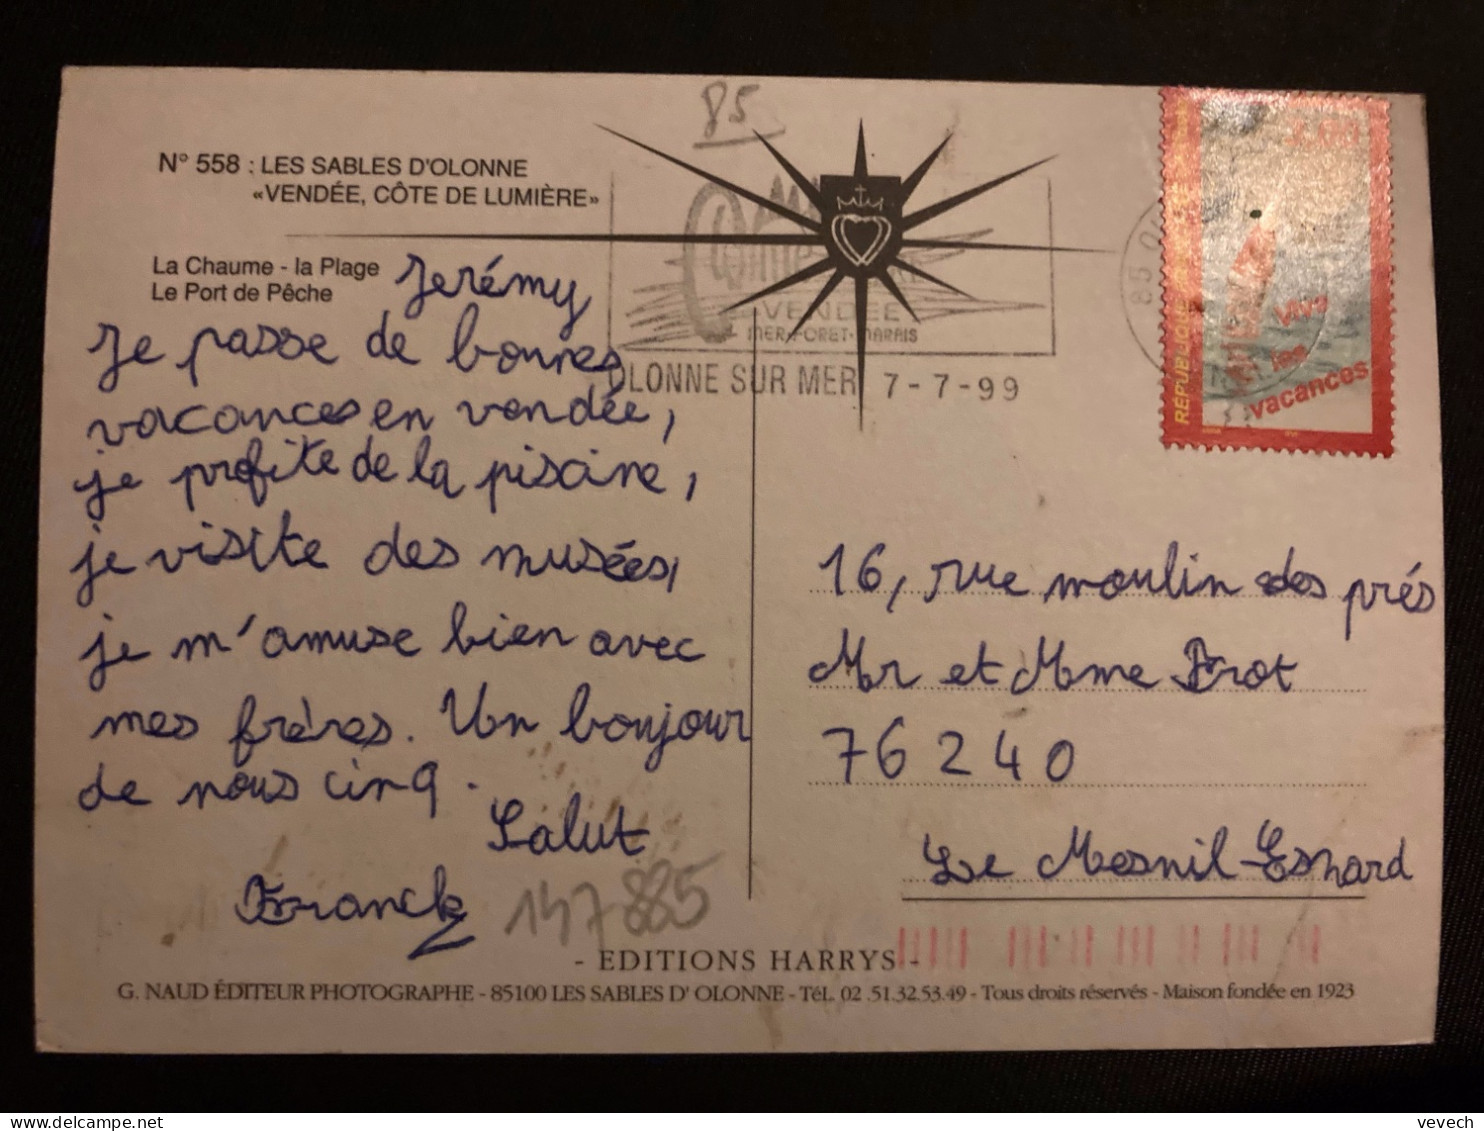 85
N° 558 : LES SABLES D'OLONNE
«VENDÉE, CÔTE DE LUMIÈRE»
La Chaume - la Plage
Le Port de Pêche
VENDEE
MER-FORET-MARAIS
OLONNE SUR MER 7-7-99
3,00
Vive
les
vacances
Jerémy
Je passe de bonnes
vacances en vendée,
je profite de la piscine,
je visite des musées,
je m'amuse bien avec
mes frères. Un bonjour
de nous cinq.
Salut
Franck
147885
16, rue moulin des prés
Mr et Mme Frot
76240
Le Mesnil-Esnard
- EDITIONS HARRYS -
G. NAUD ÉDITEUR PHOTOGRAPHE - 85100 LES SABLES D' OLONNE - Tél. 02 .51.32.53.49 - Tous droits réservés - Maison fondée en 1923
vevech